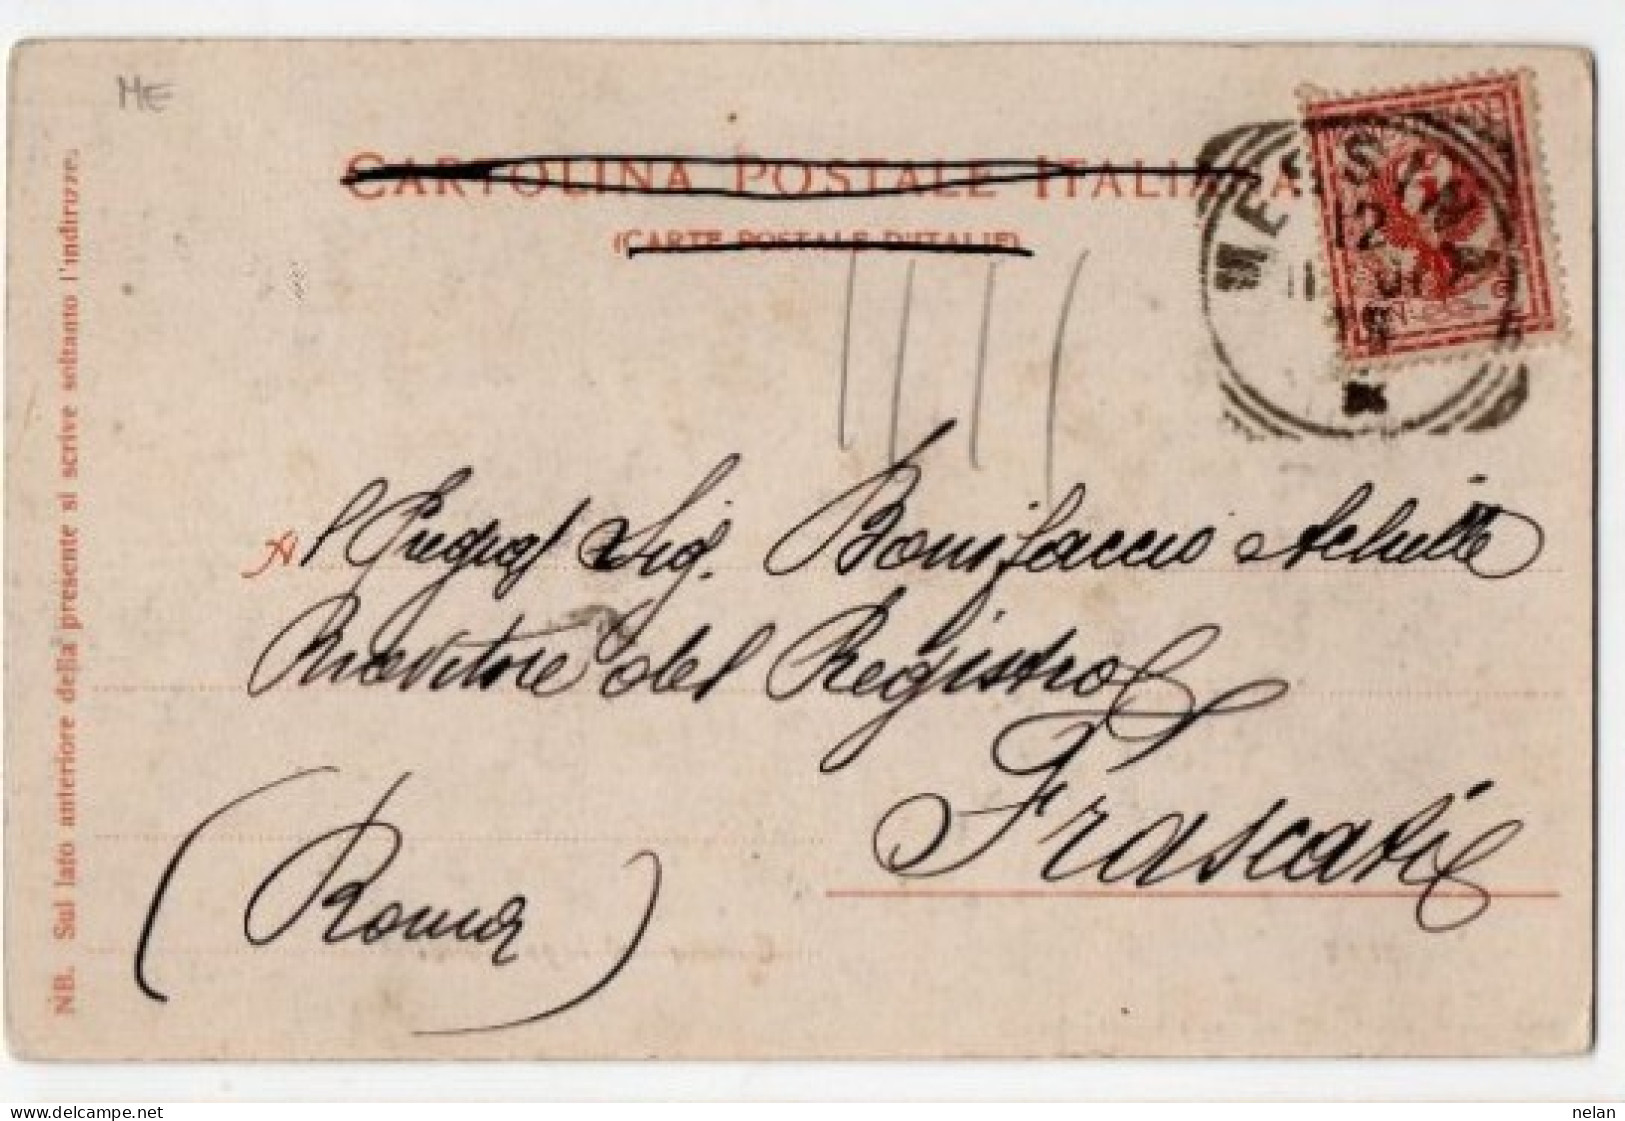 ME
CARTOLINA POSTALE ITALIANA
(CARTE POSTALE D'ITALIE)
MESSINA
12
NB. Sul lato anteriore della presente si scrive soltanto l'indirizzo.
A l'Pregg Sig. Bonifaccio Achille
Ricevitore del Registro
Frascati
(Roma)
www.delcampe.net
nelan